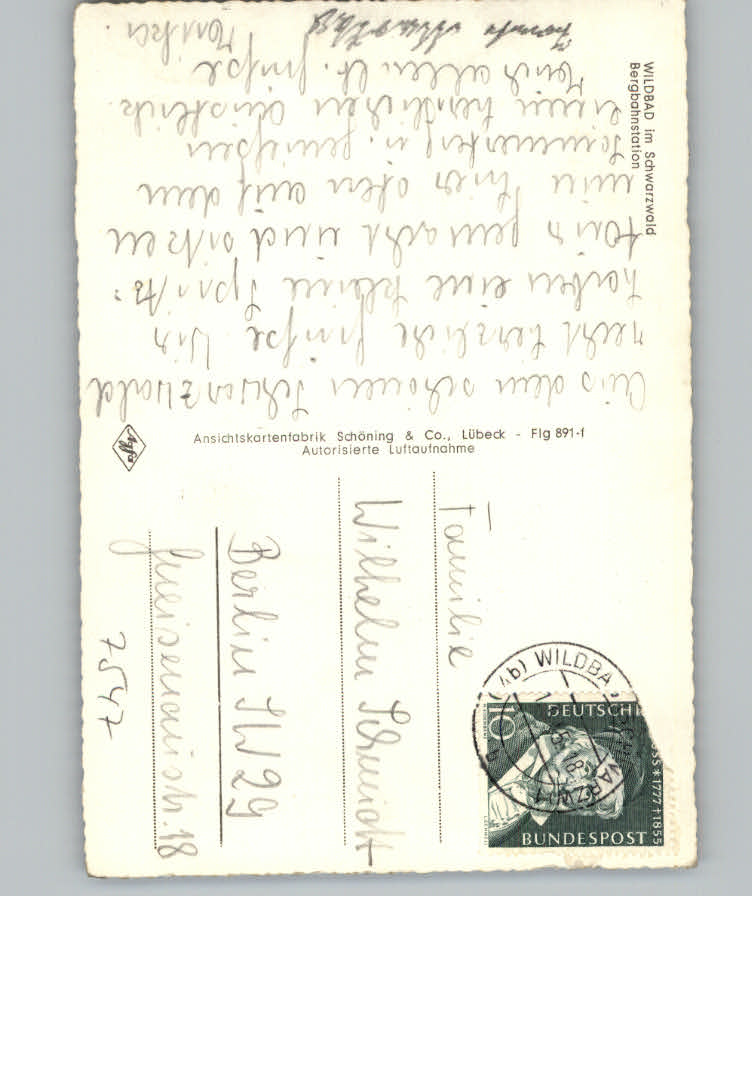 WILDBAD im Schwarzwald
Bergbahnstation
Aus dem schönen Schwarzwald
recht herzliche Grüße. Wir
haben eine kleine Spritz-
tour gemacht und sitzen
nun hier oben auf dem
Sommerberg u. genießen
einen herrlichen Ausblick.
Euch allen lb. Grüße
Ansichtskartenfabrik Schöning & Co., Lübeck - Flg 891-f
Autorisierte Luftaufnahme
Agfa
Familie
Wilhelm Schmidt
Berlin SW 29
Gneisenaustr. 18
7547
WILDBAD
SCHWARZW
10
DEUTSCHE
BUNDESPOST
1855